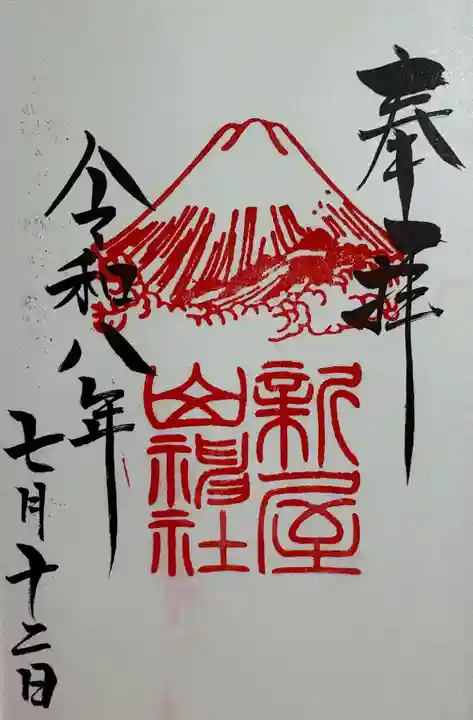 奉拝
新屋
山神社
令和八年
七月十二日